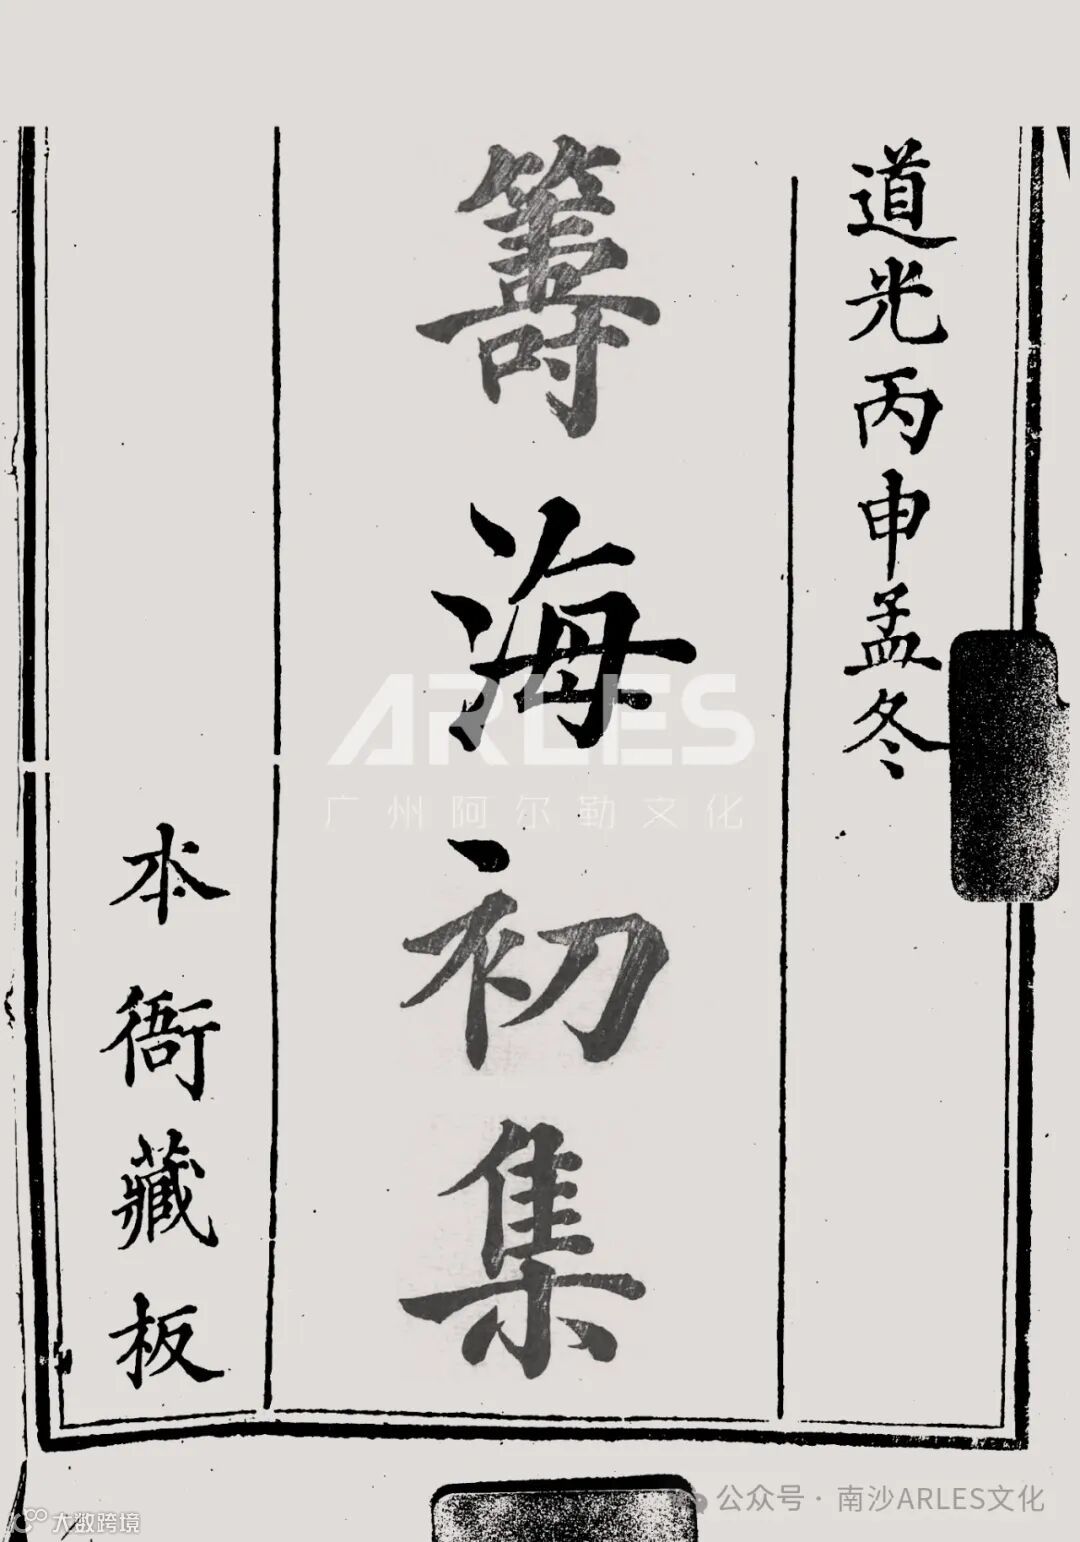 道光丙申孟冬
籌海初集
本衙藏板
ARLES
广州阿尔勒文化
公众号·南沙ARLES文化
大数跨境